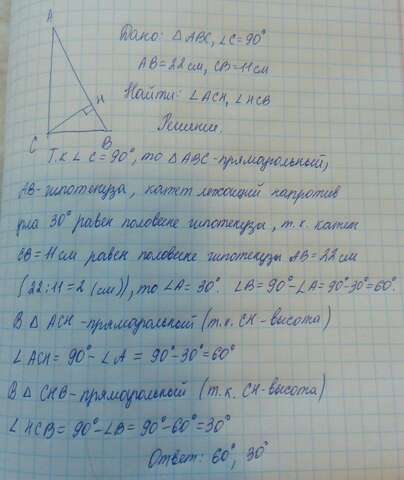 A
Дано: △ABC, ∠C=90°
AB=22см, CB=11см
H
Найти: ∠ACH, ∠HCB
C
B
Решение.
Т.к ∠C=90°, то △ABC-прямоугольный,
AB-гипотенуза, катет лежащий напротив
угла 30° равен половине гипотенузы, т.к. катет
CB=11см равен половине гипотенузы AB=22см
(22:11=2 (см)), то ∠A=30°. ∠B=90°-∠A=90°-30°=60°.
В △ACH-прямоугольный (т.к. CH-высота)
∠ACH=90°-∠A=90°-30°=60°
В △CHB-прямоугольный (т.к. CH-высота)
∠HCB=90°-∠B=90°-60°=30°
Ответ: 60°; 30°